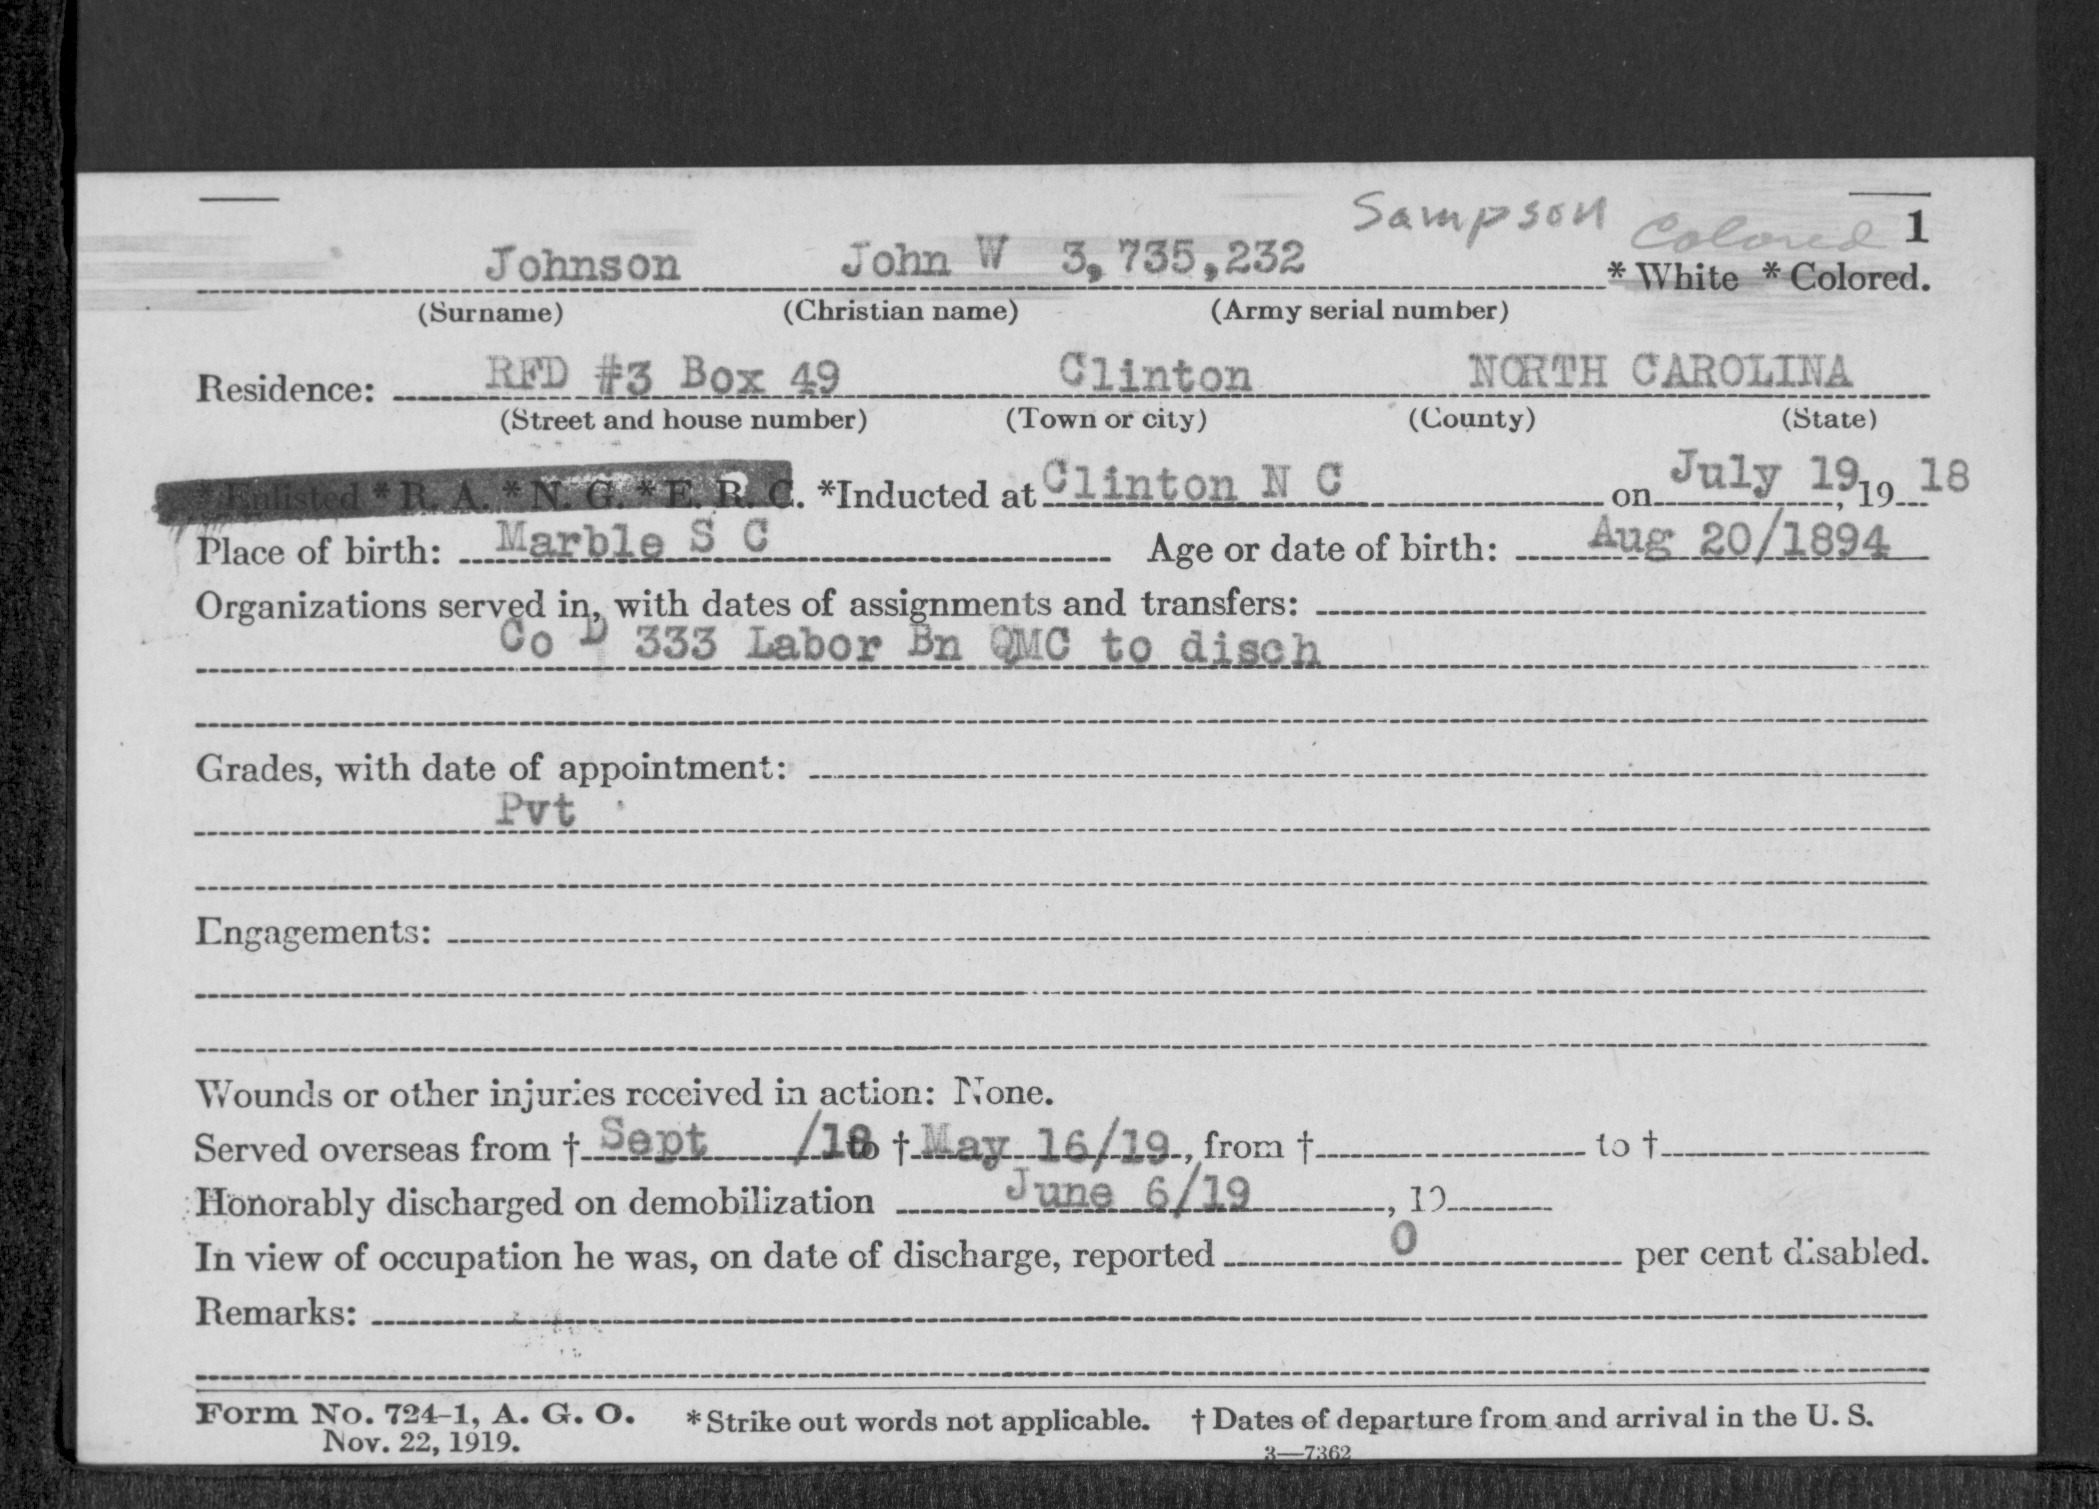 Sampson
Colored 1
Johnson John W 3,735,232 * White * Colored.
(Surname) (Christian name) (Army serial number)
Residence: RFD #3 Box 49 Clinton NORTH CAROLINA
(Street and house number) (Town or city) (County) (State)
* Enlisted * R. A. * N. G. * E. R. C. *Inducted at Clinton N C on July 19, 19 18
Place of birth: Marble S C Age or date of birth: Aug 20/1894
Organizations served in, with dates of assignments and transfers:
Co D 333 Labor Bn QMC to disch
Grades, with date of appointment:
Pvt
Engagements:
Wounds or other injuries received in action: None.
Served overseas from † Sept /18 to † May 16/19, from † to †
Honorably discharged on demobilization June 6/19, 19
In view of occupation he was, on date of discharge, reported 0 per cent disabled.
Remarks:
Form No. 724-1, A. G. O. * Strike out words not applicable. † Dates of departure from and arrival in the U. S.
Nov. 22, 1919. 3—7362